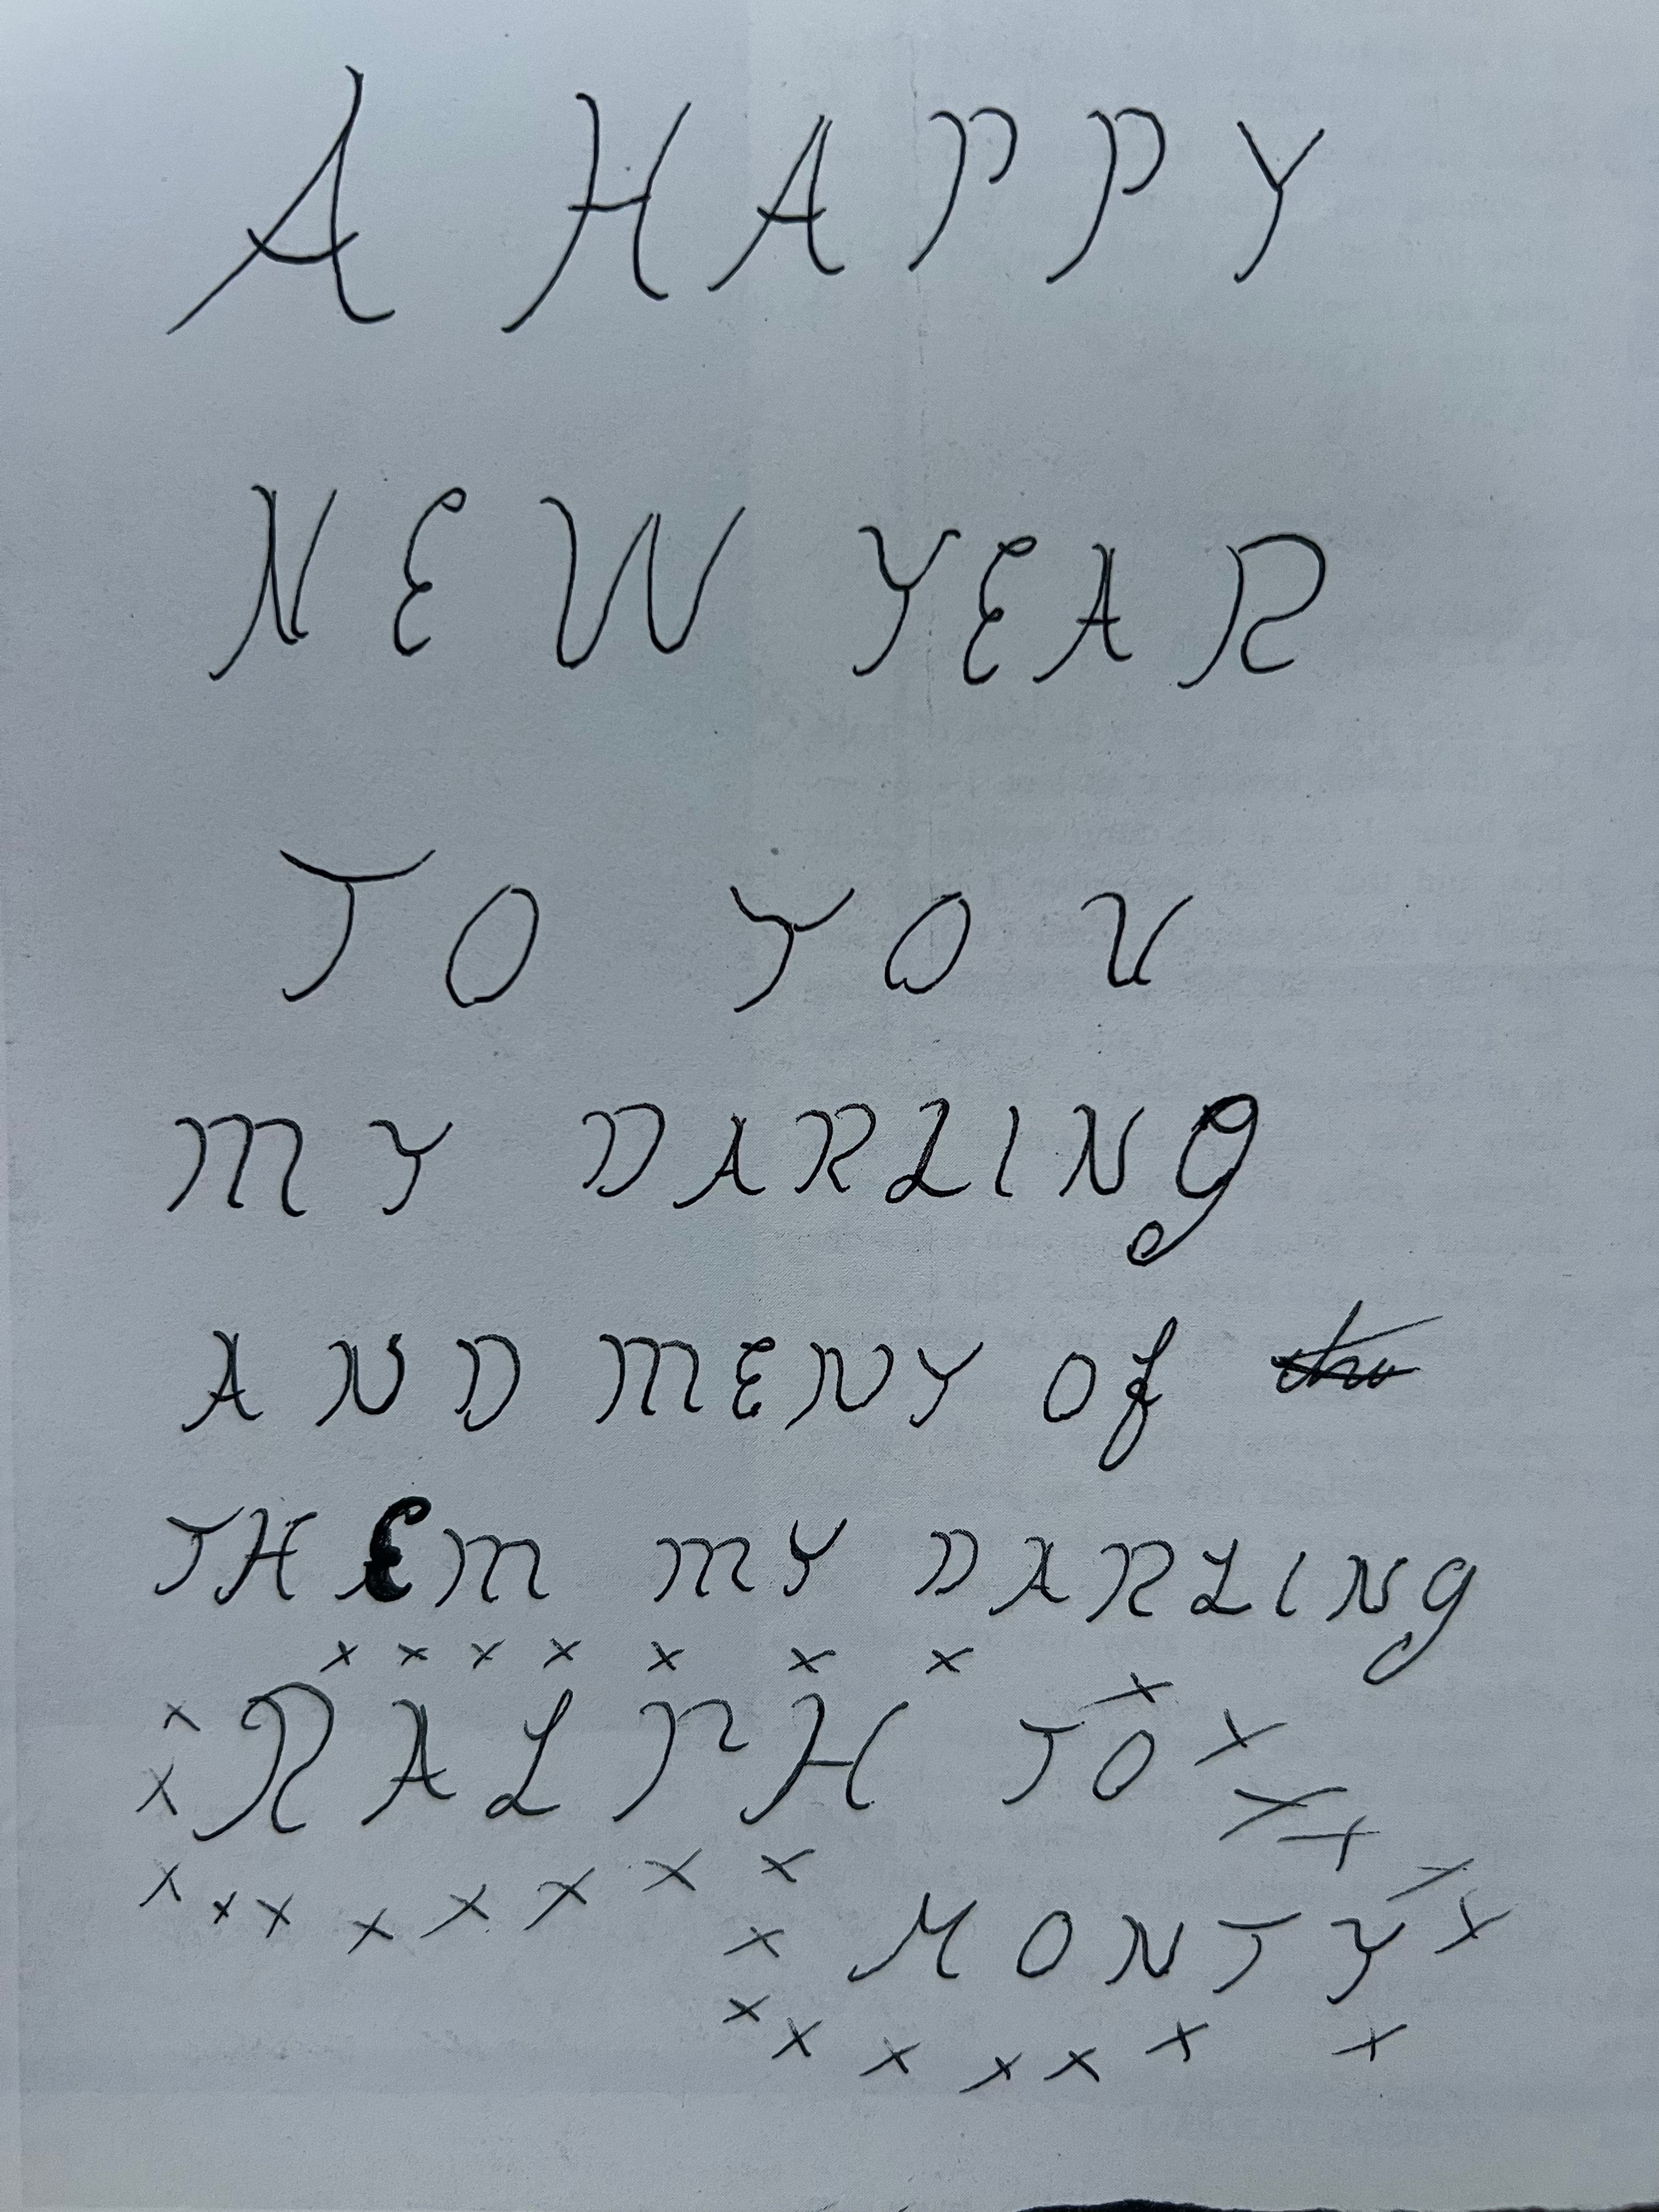 A HAPPY
NEW YEAR
TO YOU
MY DARLING
AND MENY Of
THEM MY DARLING
x x x x x x x
x RALPH TO x x
x x x
x x x x x x x x x x
x MONTY x
x x x x x x x